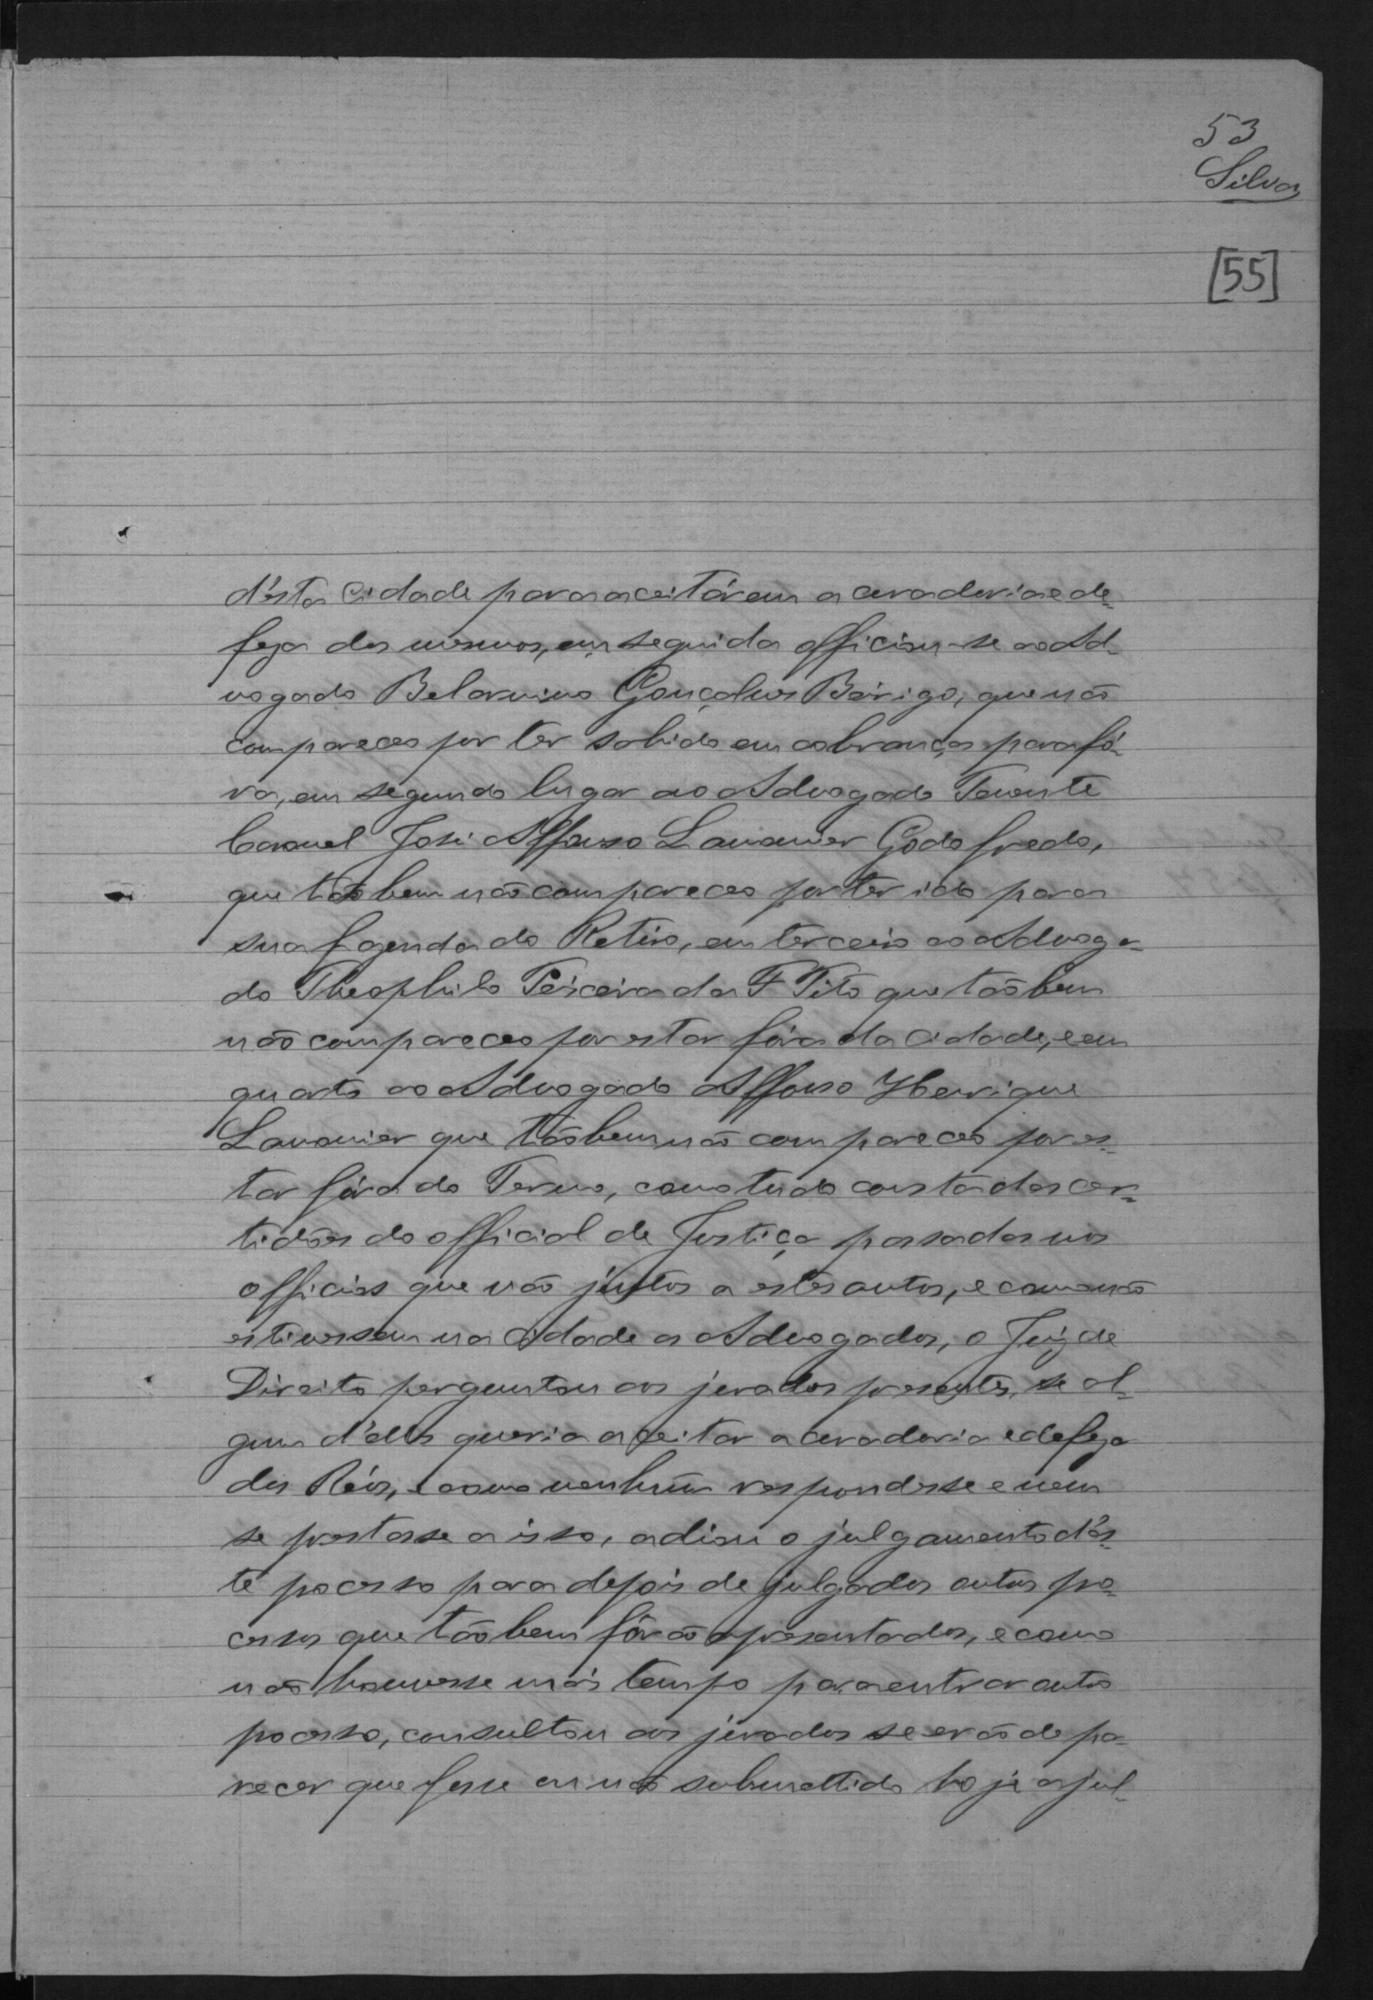 53
Silva
[55]
d'ésta Cidade para aceitárem a curadoria e de-
feza dos mesmos, em seguida officiou-se ao Ad-
vogado Belarmino Gonçalves Bárigo, que não
compareceo por ter sahido em cobranças para fó-
ra, em segundo lugar ao Advogado Tenente
Coronel José Affonso Lamounier Godofredo,
que tãobem não compareceo por ter ido para
sua fazenda do Retiro, em terceiro ao Advoga-
do Theophilo Teixeira da F Tito que tãobem
não compareceo por estar fóra da Cidade, e em
quarto ao Advogado Affonso Henrique
Lamounier que tãobem não compareceo por es-
tar fóra do Termo, como tudo consta das cer-
tidões do official de Justiça passadas nos
officios que vão juntos a estes autos, e como não
estivessem na Cidade os Advogados, o Juiz de
Direito perguntou aos jurados presentes, se al-
gum d'élles queria aceitar a curadoria e defeza
dos Réos, e como nenhum respondesse e nem
se prestasse a isso, adiou o julgamento d'és-
te pocesso para depois de julgados outos po-
cessos que tãobem fôrão apresentados, e como
não houvesse mais tempo para entrar outo
pocesso, consultou aos jurados se erão de pa-
recer que fosse ou não submettido hoje a jul-